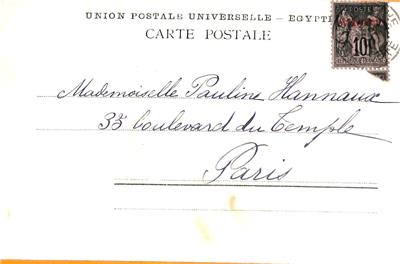 UNION POSTALE UNIVERSELLE – EGYPTE
CARTE POSTALE
10
Mademoiselle Pauline Hannaux
35 boulevard du Temple
Paris